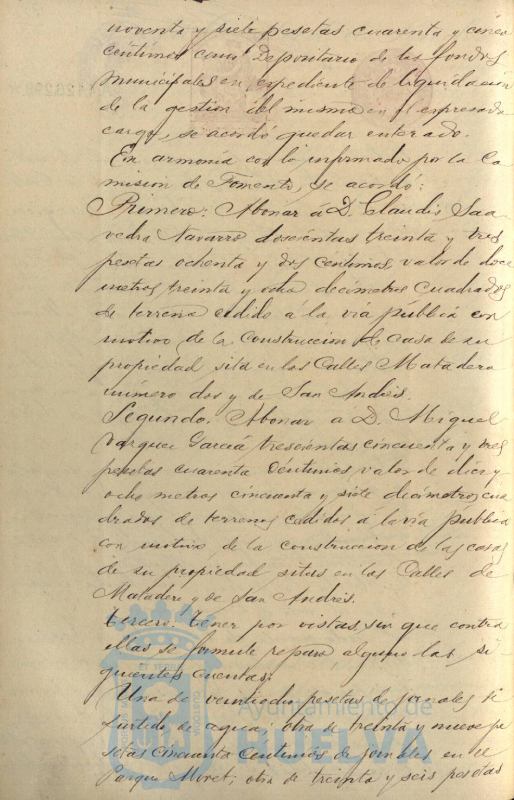 noventa y siete pesetas cuarenta y cinco
centimos como Depositario de los fondos
municipales en expediente de liquidación
de la gestion del mismo en el expresado
cargo, se acordó quedar enterado.
En armonía con lo informado por la Co
mision de Fomento, se acordó:
Primero: Abonar á D. Claudio Saa
vedra Navarro doscientas treinta y tres
pesetas ochenta y dos centimos, valor de doce
metros treinta y ocho decímetros cuadrados
de terreno cedido a la vía pública con
motivo de la construccion de casa de su
propiedad sita en las Calles Matadero
número dos y de San Andrés.
Segundo. Abonar a D. Miguel
Vazquez García, trescientas cincuenta y tres
pesetas cuarenta centimos, valor de diez y
ocho metros cincuenta y siete decímetros cua
drados de terrenos cedidos á la vía pública
con motivo de la construccion de las casas
de su propiedad sitas en las Calles de
Matadero y de San Andrés.
Tercero. Tener por vistas, sin que contra
ellas se formule reparo alguno las si
guientes cuentas:
Una de veintiocho pesetas de jornales de
surtido de agua; otra de treinta y nueve pe
setas cincuenta centimos de jornales en el
Parque Moret; otra de treinta y seis pesetas
Ayuntamiento de
HUELVA